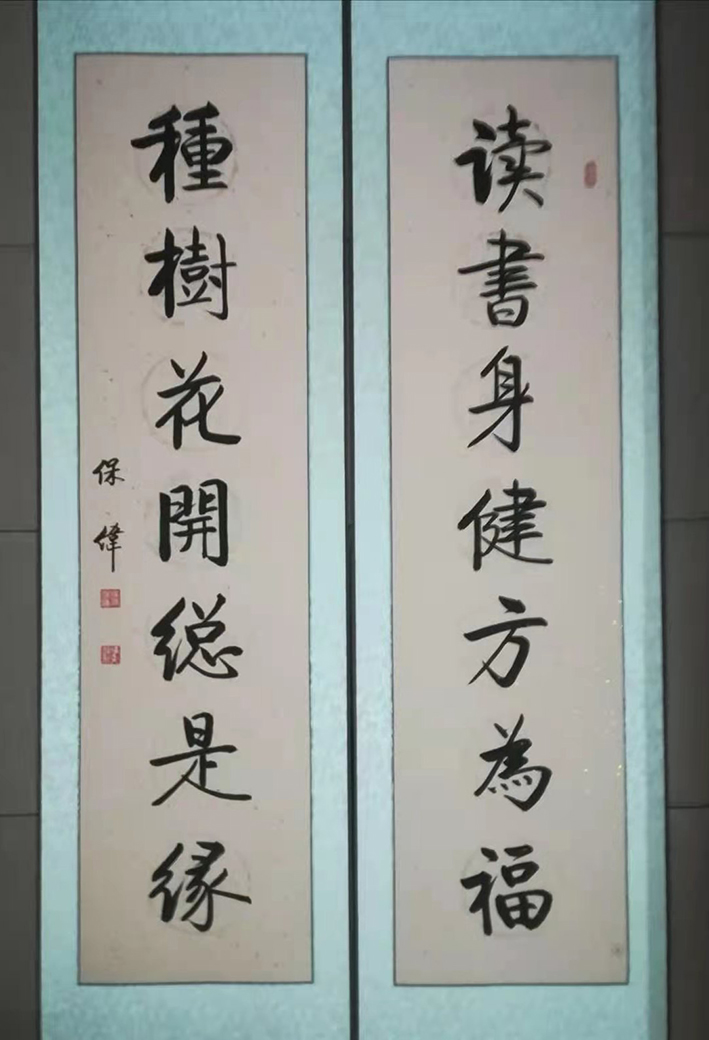 读書身健方為福
種樹花開縂是缘
保偉